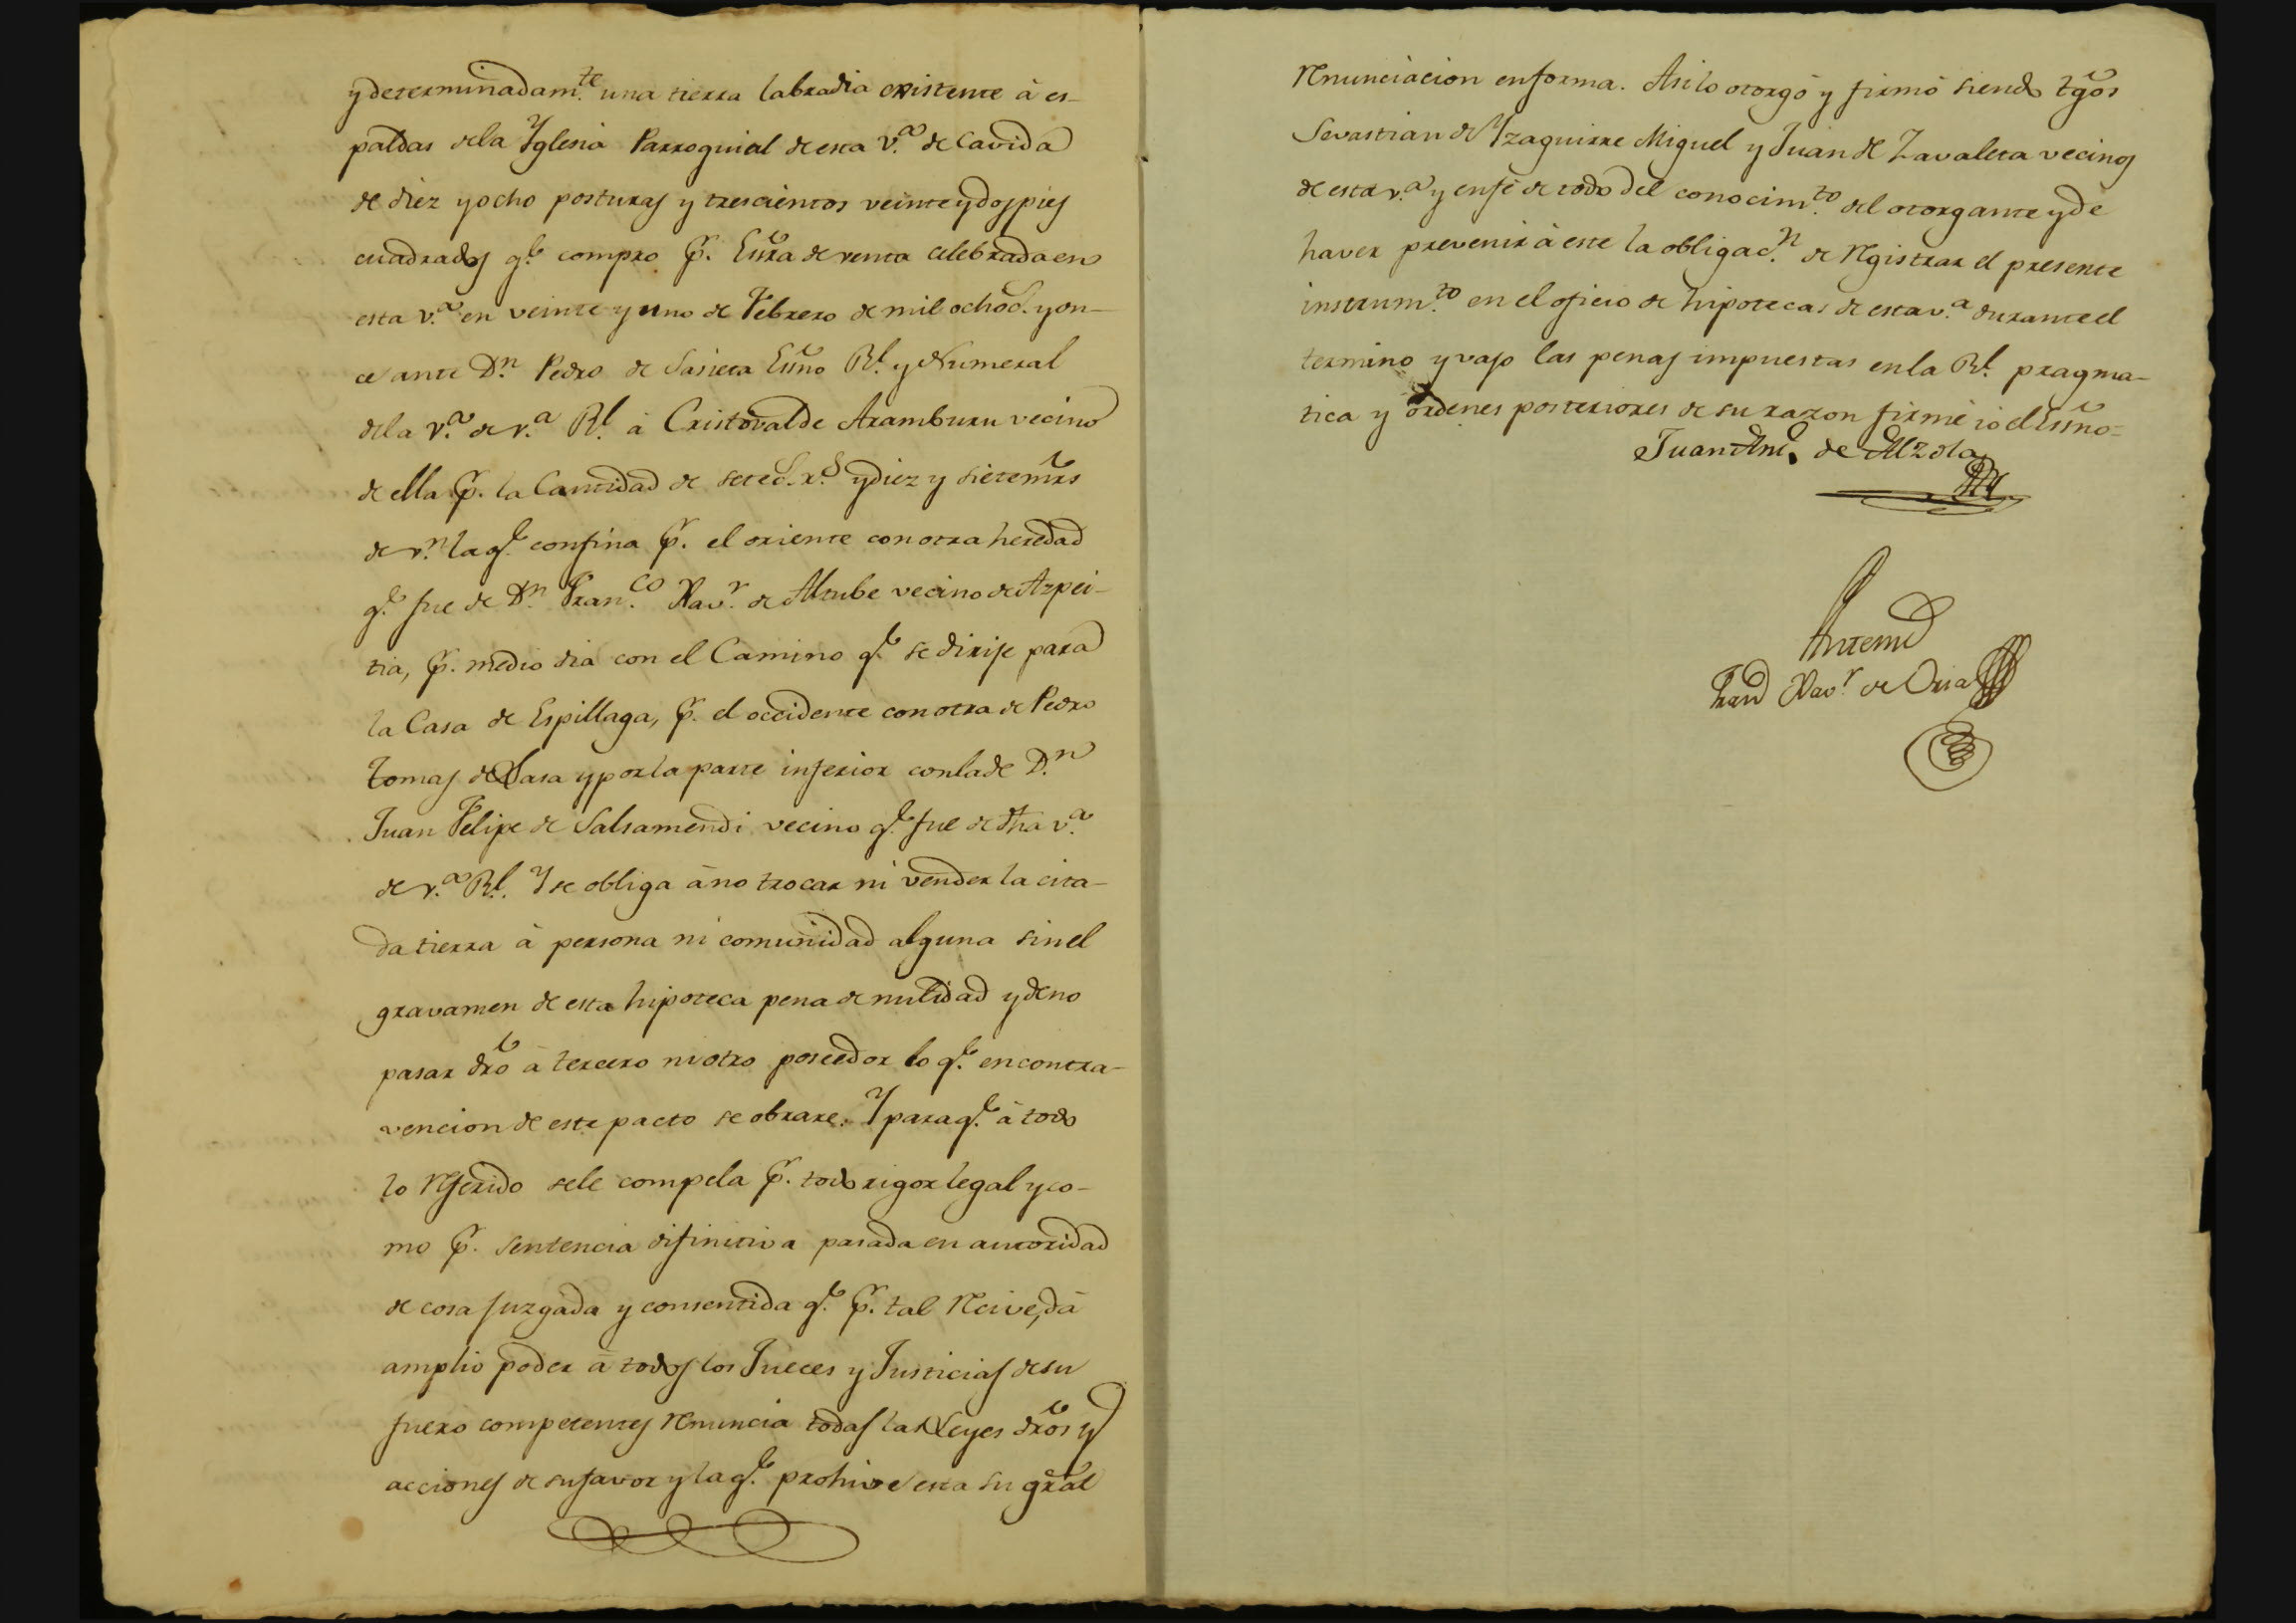 y determinadam.te una tierra labradia existente à es-
paldas dela Yglesia Parroquial de esta v.a de cavida
de diez y ocho posturas y trescientos veinte y dos pies
cuadrados q.e compro p.r Essra de venta celebrada en
esta v.a en veinte y uno de Febrero de mil ochoc.s y on-
ce ante D.n Pedro de Sasieta Essno R.l y Numeral
dela v.a de v.a R.l à Cristoval de Aramburu vecino
de ella p.r la Cantidad de setec.s r.s y diez y siete mrs
de v.n la q.e confina p.r el oriente con otra heredad
q.e fue de D.n Fran.co Xav.r de Altube vecino de Azpei-
tia, p.r medio dia con el Camino q.e se dirije para
la Casa de Espillaga, p.r el occidente con otra de Pedro
Tomas de Lasa y por la parte inferior con la de D.n
Juan Felipe de Salsamendi vecino q.e fue de dha v.a
de v.a R.l. Y se obliga à no trocar ni vender la cita-
da tierra à persona ni comunidad alguna sin el
gravamen de esta hipoteca pena de nulidad y de no
pasar dro à tercero ni otro poseedor lo q.e en contra-
vencion de este pacto se obrare. Y para q.e à todo
lo referido sele compela p.r todo rigor legal y co-
mo p.r sentencia difinitiva pasada en autoridad
de cosa juzgada y consentida q.e p.r tal recive, dà
amplio poder à todos los Jueces y Justicias de su
fuero competentes renuncia todas las Leyes dros y
acciones de su favor y la q.e prohive esta su gral
renunciacion en forma. Asi lo otorgò y firmò siendo tgos
Sevastian de Yzaguirre Miguel y Juan de Zavaleta vecinos
de esta v.a y en fè de todo del conocim.to del otorgante y de
haver prevenir à este la obligac.n de registrar el presente
instrum.to en el oficio de hipotecas de esta v.a durante el
termino y vajo las penas impuestas en la R.l pragma-
tica y ordenes posteriores de su razon firmè io el Essno=
Juan Ant.o de Alzola
Antemi
Fran.co Xav.r de Oria